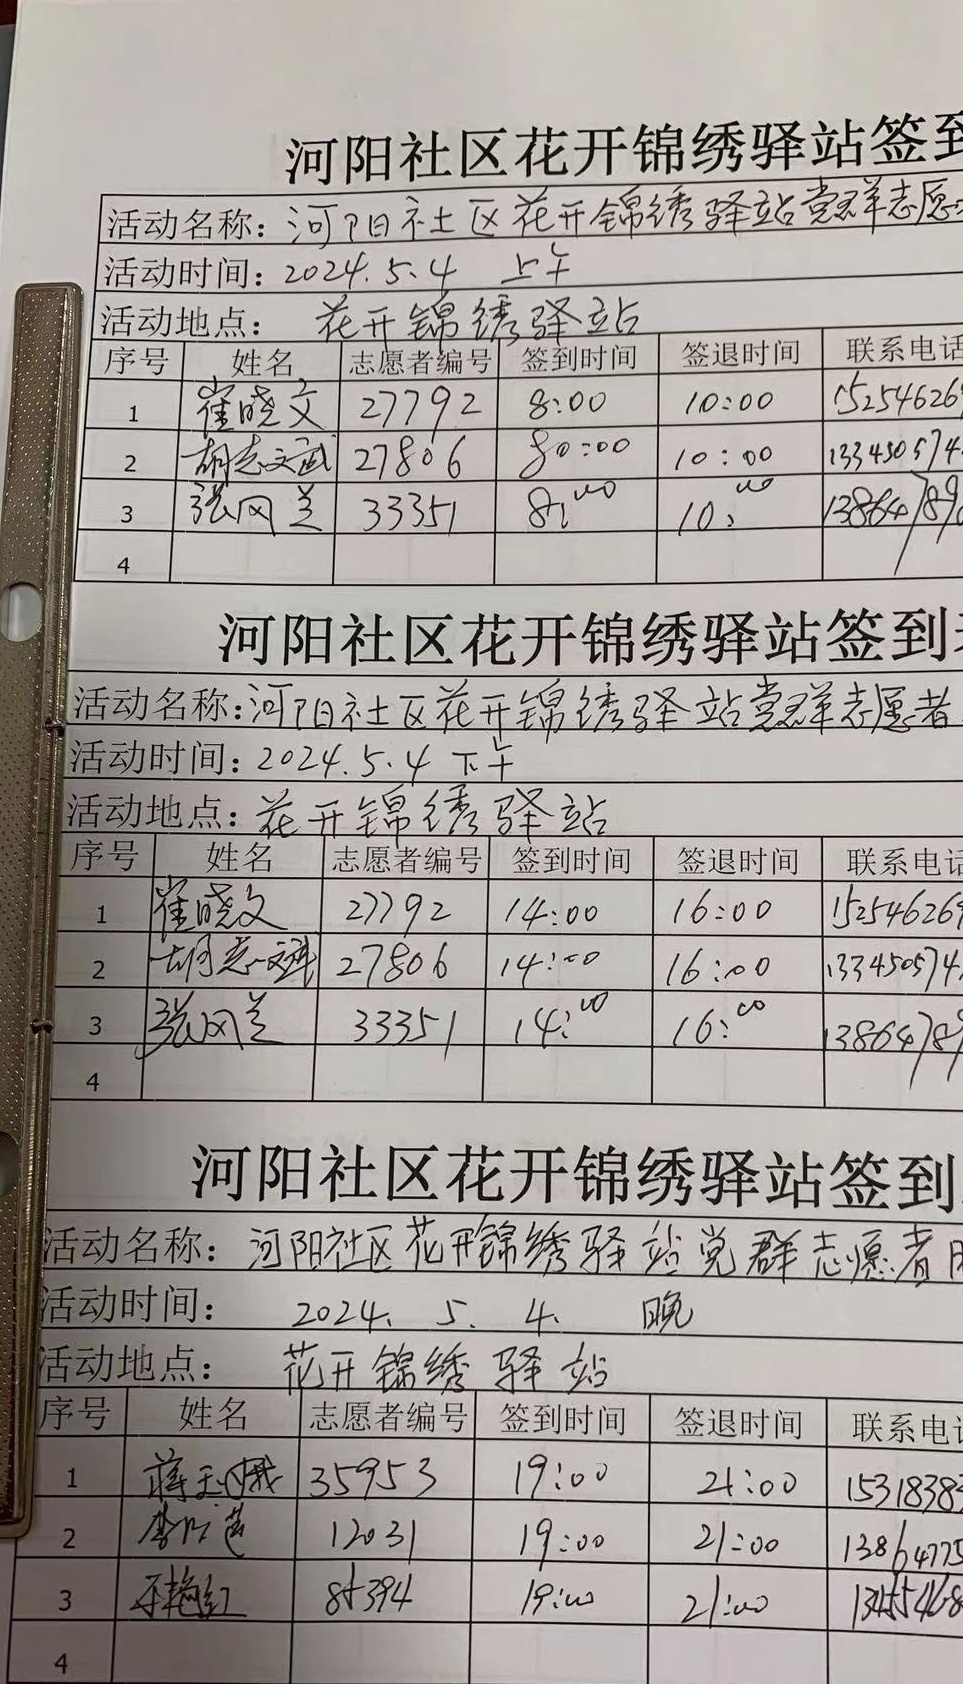 河阳社区花开锦绣驿站签到
活动名称：河阳社区花开锦绣驿站党群志愿
活动时间：2024.5.4 上午
活动地点： 花开锦绣驿站
序号 姓名 志愿者编号 签到时间 签退时间 联系电话
1 崔晓文 27792 8:00 10:00 152546269
2 胡志文武 27806 80:00 10:00 133450574
3 张风兰 33351 8:00 10:00 13864789
4
河阳社区花开锦绣驿站签到
活动名称：河阳社区花开锦绣驿站党群志愿者
活动时间：2024.5.4 下午
活动地点：花开锦绣驿站
序号 姓名 志愿者编号 签到时间 签退时间 联系电话
1 崔晓文 27792 14:00 16:00 152546269
2 胡志 27806 14:00 16:00 133450574
3 张风兰 33351 14:00 16:00 1386478
4
河阳社区花开锦绣驿站签到
活动名称：河阳社区花开锦绣驿站党群志愿者
活动时间： 2024. 5. 4. 晚
活动地点： 花开锦绣驿站
序号 姓名 志愿者编号 签到时间 签退时间 联系电话
1 蒋玉娥 35953 19:00 21:00 15318383
2 李 莲 12031 19:00 21:00 13864775
3 艳红 85394 19:00 21:00 13455468
4